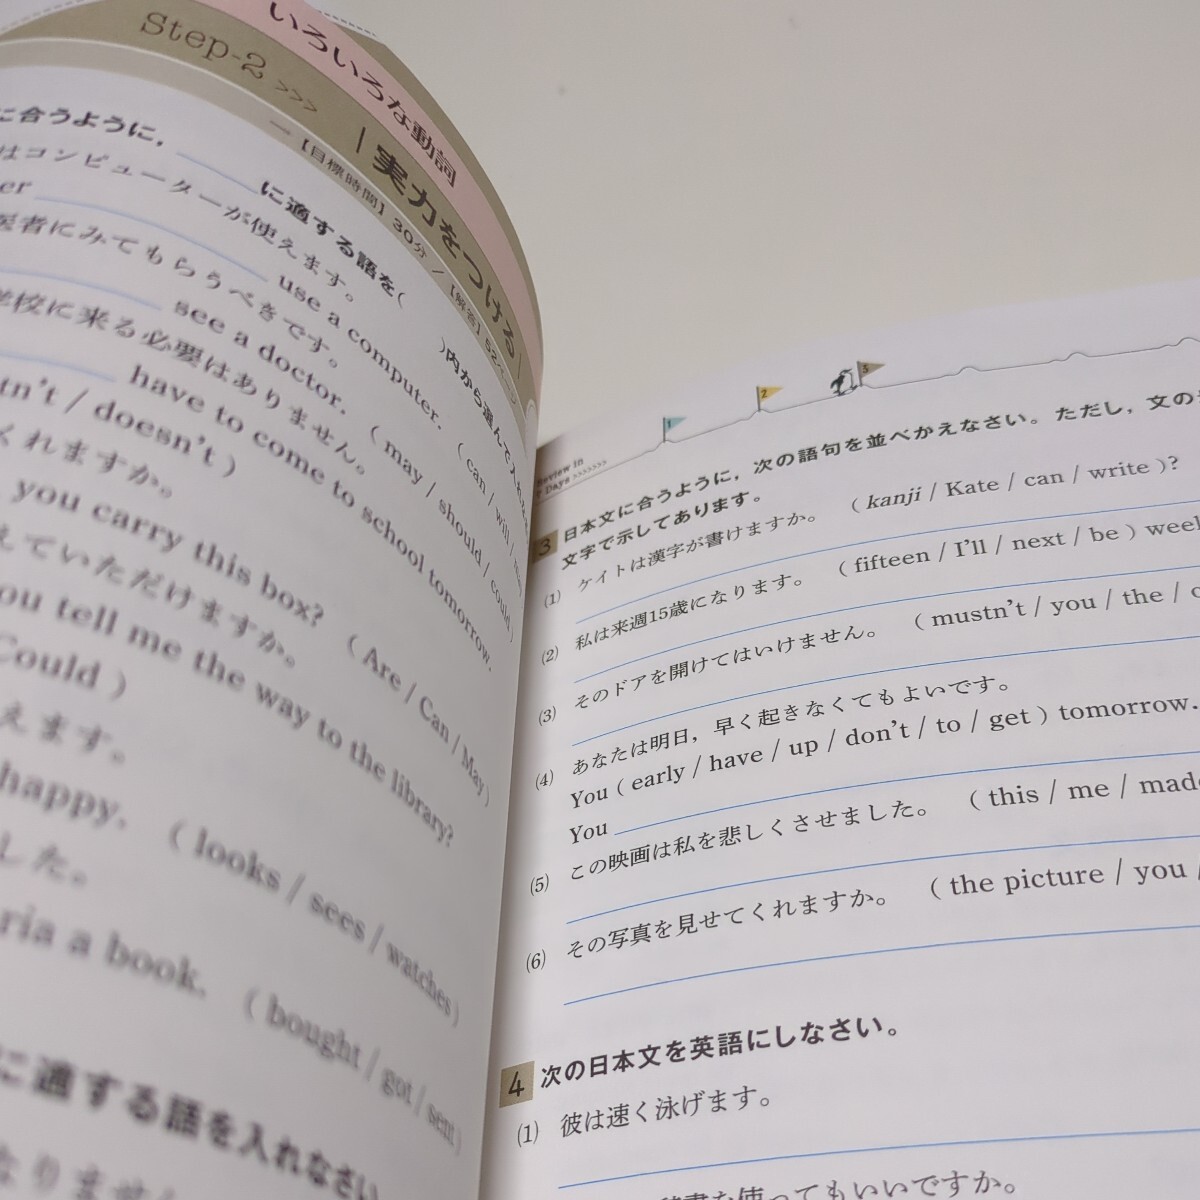 いろいろな動詞
Step-2 >>> 実力をつける
【目標時間】30分 / 【解答】52ページ
に合うように，＿＿に適する語を( )内から選んで入れ
はコンピューターが使えます。
use a computer. ( can / will /
医者にみてもらうべきです。
see a doctor. ( may / should / could )
学校に来る必要はありません。
have to come to school tomorrow.
tn't / doesn't )
くれますか。
you carry this box? ( Are / Can / May )
えていただけますか。
ou tell me the way to the library?
Could )
えます。
happy. ( looks / sees / watches )
した。
ria a book. ( bought / got / sent )
に適する語を入れなさい
なりません
Review in
7 Days >>>>>>>
1
2
5
3 日本文に合うように，次の語句を並べかえなさい。ただし，文の
文字で示してあります。
(1) ケイトは漢字が書けますか。 ( kanji / Kate / can / write )?
(2) 私は来週15歳になります。 ( fifteen / I'll / next / be ) week
(3) そのドアを開けてはいけません。 ( mustn't / you / the / o
(4) あなたは明日，早く起きなくてもよいです。
You ( early / have / up / don't / to / get ) tomorrow.
You
(5) この映画は私を悲しくさせました。 ( this / me / made
(6) その写真を見せてくれますか。 ( the picture / you /
4 次の日本文を英語にしなさい。
(1) 彼は速く泳げます。
辞書を使ってもいいですか。